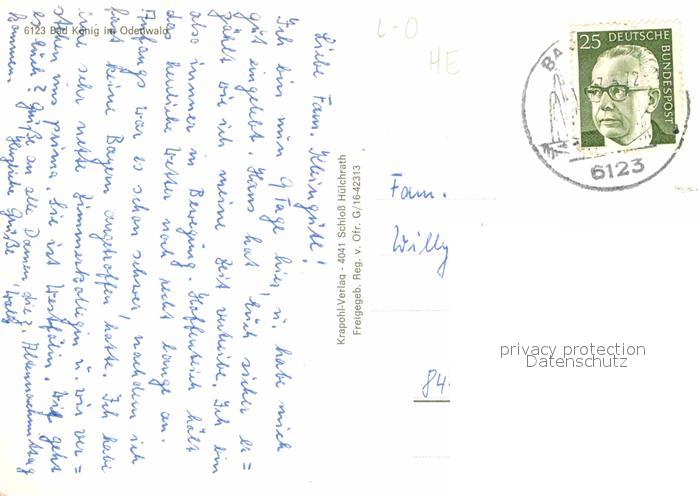 6123 Bad König im Odenwald
Liebe Fam. Kleingütl!
Ich bin nun 9 Tage hier, u. habe mich
gut eingelebt. Hans hat Euch sicher er=
zählt wie ich meine Zeit vertreibe. Ich bin
also immer in Bewegung. Hoffentlich hält
das herrliche Wetter noch recht lange an.
Anfangs war es schon schwer, nachdem ich
fast keine Bayern angetroffen hatte. Ich habe
eine sehr nette Zimmerkollegin u. wir ver=
stehen uns prima. Sie ist Westfälin. Wie geht
es Euch? Grüße an alle Damen die z. Altennachmittag
kommen. Herzliche Grüße
Krapohl-Verlag - 4041 Schloß Hülchrath
Freigegeb. Reg. v. Ofr. G/16-42313
L-O
HE
25 DEUTSCHE
BUNDESPOST
BA
6123
Fam.
Willy
84
privacy protection
Datenschutz